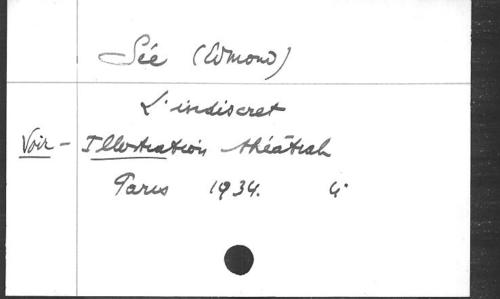 Sée (Edmond)
L'indiscret
Voir - Illustration théâtrale
Paris 1934. 4°